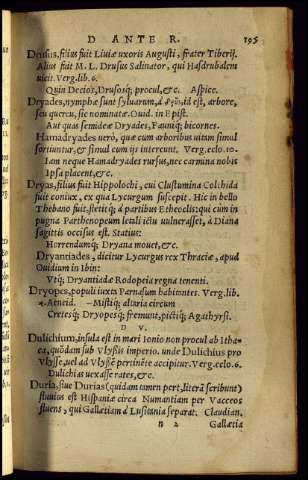 D ANTE R. 195
Drusus, filius fuit Liuiæ uxoris Augusti, frater Tiberij.
Alius fuit M. L. Drusus Salinator, qui Hasdrubalem
uicit. Verg. lib. 6.
Quin Decior, Drusosq; procul, &c. Aspice.
Dryades, nymphæ sunt syluarum, à id est, arbore,
seu quercu, sic nominatæ. Ouid. in Epist.
Aut quas semideæ Dryades, Fauniq; bicornes.
Hamadryades uerò, quæ cum arboribus uitam simul
sortiuntur, & simul cum ijs intereunt. Verg. eclo. 10.
Iam neque Hamadryades rursus, nec carmina nobis
Ipsa placent, &c.
Dryas, filius fuit Hippolochi, cui Clustumina Colchida
fuit coniux, ex qua Lycurgum suscepit. Hic in bello
Thebano fuit, stetitq; à partibus Etheoclis: qui cum in
pugna Parthenopæum letali ictu uulnerasset, à Diana
sagittis occisus est. Statius:
Horrendumq; Dryana mouet, &c.
Dryantiades, dicitur Lycurgus rex Thraciæ, apud
Ouidium in Ibin:
Vtq; Dryantiadæ Rodopeia regna tenenti.
Dryopes, populi iuxta Parnasum habitantes. Verg. lib.
4. Aeneid. —Mistiq; altaria circum
Cretesq; Dryopesq; fremunt, pictiq; Agathyrsi.
D V.
Dulichium, insula est in mari Ionio non procul ab Itha=
ca, quōdam sub Vlyssis imperio. unde Dulichius pro
Vlysse, uel ad Vlyssē pertinēte accipitur. Verg. eclo. 6.
Dulichias uexasse rates, &c.
Duria, siue Durias (quidam tamen per t, literā scribunt)
fluuius est Hispaniæ circa Numantiam per Vacceos
fluens, qui Gallætiam à Lusitania separat. Claudian.
n 2 Gallætia